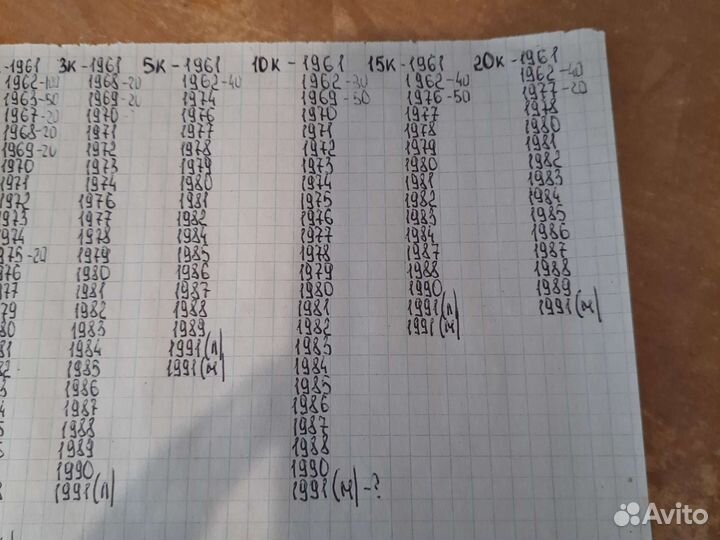 -1961 3к-1961 5к-1961 10к-1961 15к-1961 20к-1961
1962-100 1968-20 1962-40 1962-30 1962-40 1962-40
1963-50 1969-20 1974 1969-50 1976-50 1977-20
1967-20 1970 1976 1970 1977 1978
1968-20 1971 1977 1971 1978 1980
1969-20 1972 1978 1972 1979 1981
1970 1973 1979 1973 1980 1982
1971 1974 1980 1974 1981 1983
1972 1976 1981 1975 1982 1984
1973 1977 1982 1976 1983 1985
974 1978 1984 1977 1984 1986
975-20 1979 1985 1978 1987 1987
976 1980 1986 1979 1988 1988
77 1981 1987 1980 1990 1989
79 1982 1988 1981 1991(л) 1991(м)
80 1983 1989 1982 1991(м)
81 1984 1991(л) 1983
82 1985 1991(м) 1984
3 1986 1985
4 1987 1986
5 1988 1987
1989 1988
1990 1990
1991(л) 1991(м)-?
Avito